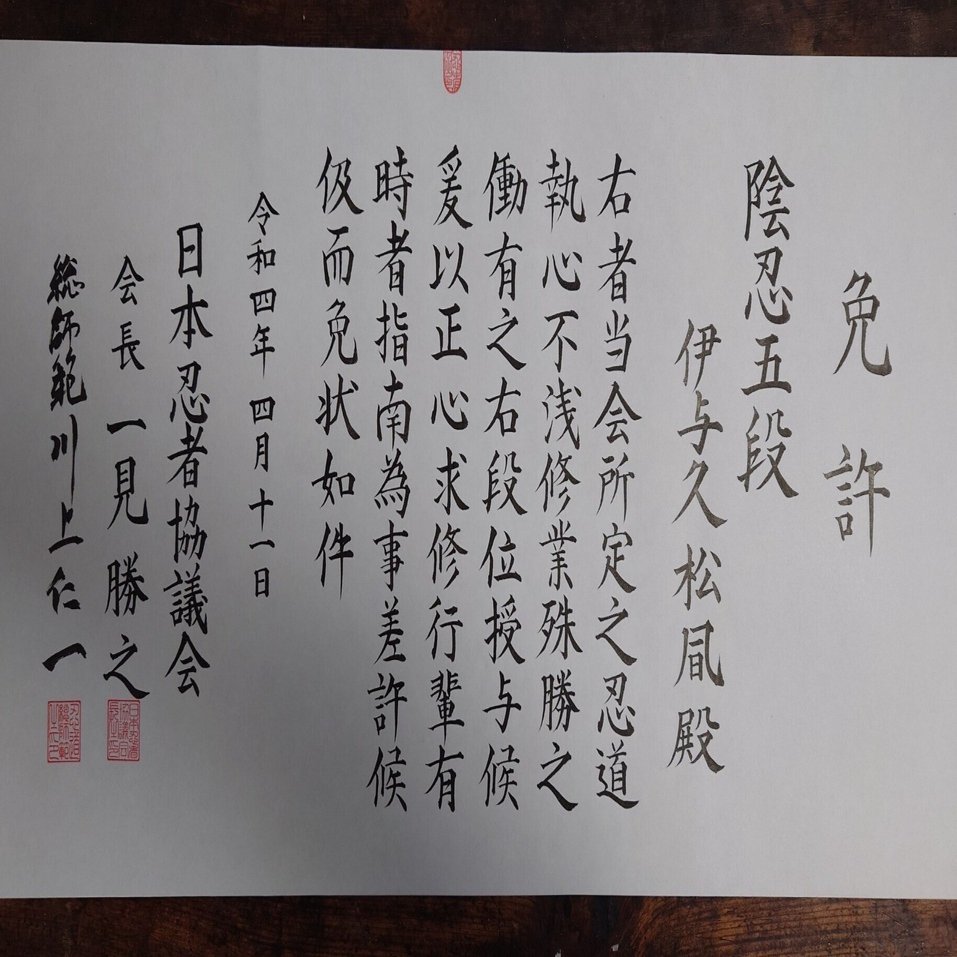 免許
陰忍五段
伊与久松凬殿
右者当会所定之忍道
執心不浅修業殊勝之
働有之右段位授与候
爰以正心求修行輩有
時者指南為事差許候
伋而免状如件
令和四年四月十一日
日本忍者協議会
会長 一見勝之
総師範 川上仁一